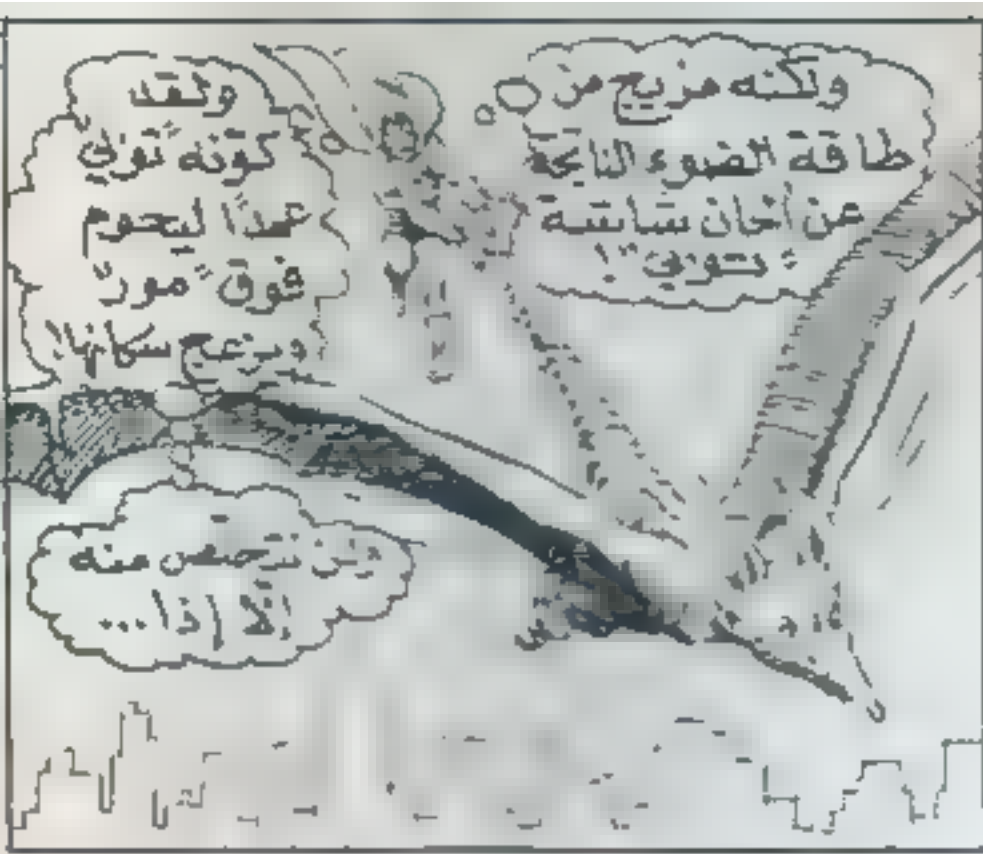 ولكنه مزيج من
طاقة الضوء الناتجة
عن أخان سابقة
ولقد
كونه توك
عمدًا ليحوم
فوق "مور"
ويزعج سكانها
ولن نتخلص منه
إلا إذا...